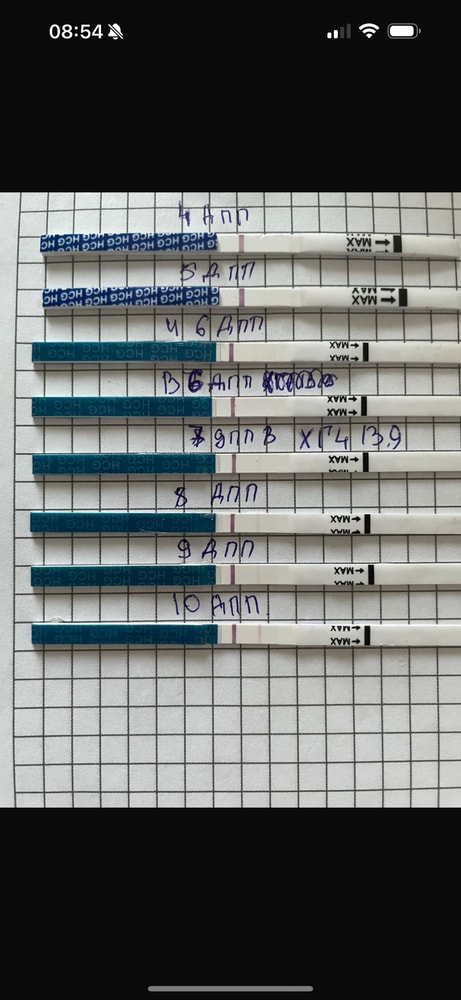 08:54
4 ДПП
HCG HCG HCG HCG HCG HCG HCG
MAX
5 ДПП
HCG HCG HCG HCG HCG HCG HCG
MAX
Ч 6 ДПП
HCG
MAX
В 6 ДПП
MAX
7 ДПП В ХГЧ 13,9
HCG
MAX
8 ДПП
MAX
9 ДПП
MAX
10 ДПП
MAX
MAX